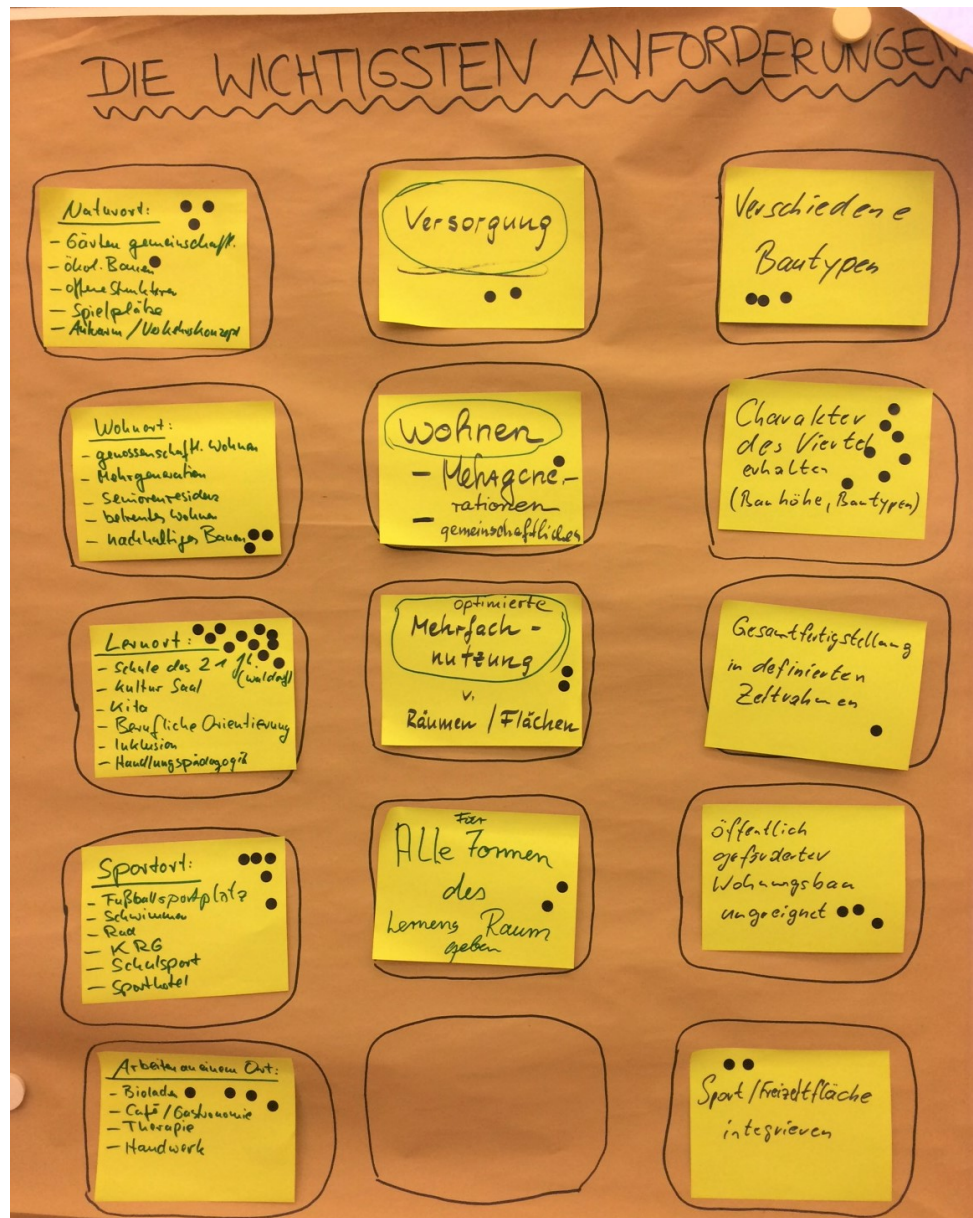 DIE WICHTIGSTEN ANFORDERUNGEN
Naturort:
- Gärten gemeinschaftl.
- ökol. Bauen
- offene Strukturen
- Spielplätze
- Autoarm / Verkehrskonzept
Wohnort:
- genossenschaftl. Wohnen
- Mehrgeneration
- Seniorenresidenz
- betreutes Wohnen
- nachhaltiges Bauen
Lernort:
- Schule des 21 Jh
(Waldorf)
- Kultur Saal
- Kita
- Berufliche Orientierung
- Inklusion
- Handlungspädagogik
Sportort:
- Fußballsportplatz
- Schwimmen
- Rad
- KRG
- Schulsport
- Sporthotel
Arbeiten an einem Ort:
- Bioladen
- Café / Gastronomie
- Therapie
- Handwerk
Versorgung
Wohnen
- Mehrgene-
rationen
- gemeinschaftlichen
optimierte
Mehrfach-
nutzung
v.
Räumen / Flächen
Für
Alle Formen
des
Lernens Raum
geben
Verschiedene
Bautypen
Charakter
des Viertel
erhalten
(Bauhöhe, Bautypen)
Gesamtfertigstellung
in definierten
Zeitrahmen
öffentlich
geförderter
Wohnungsbau
ungeeignet
Sport / Freizeitfläche
integrieren